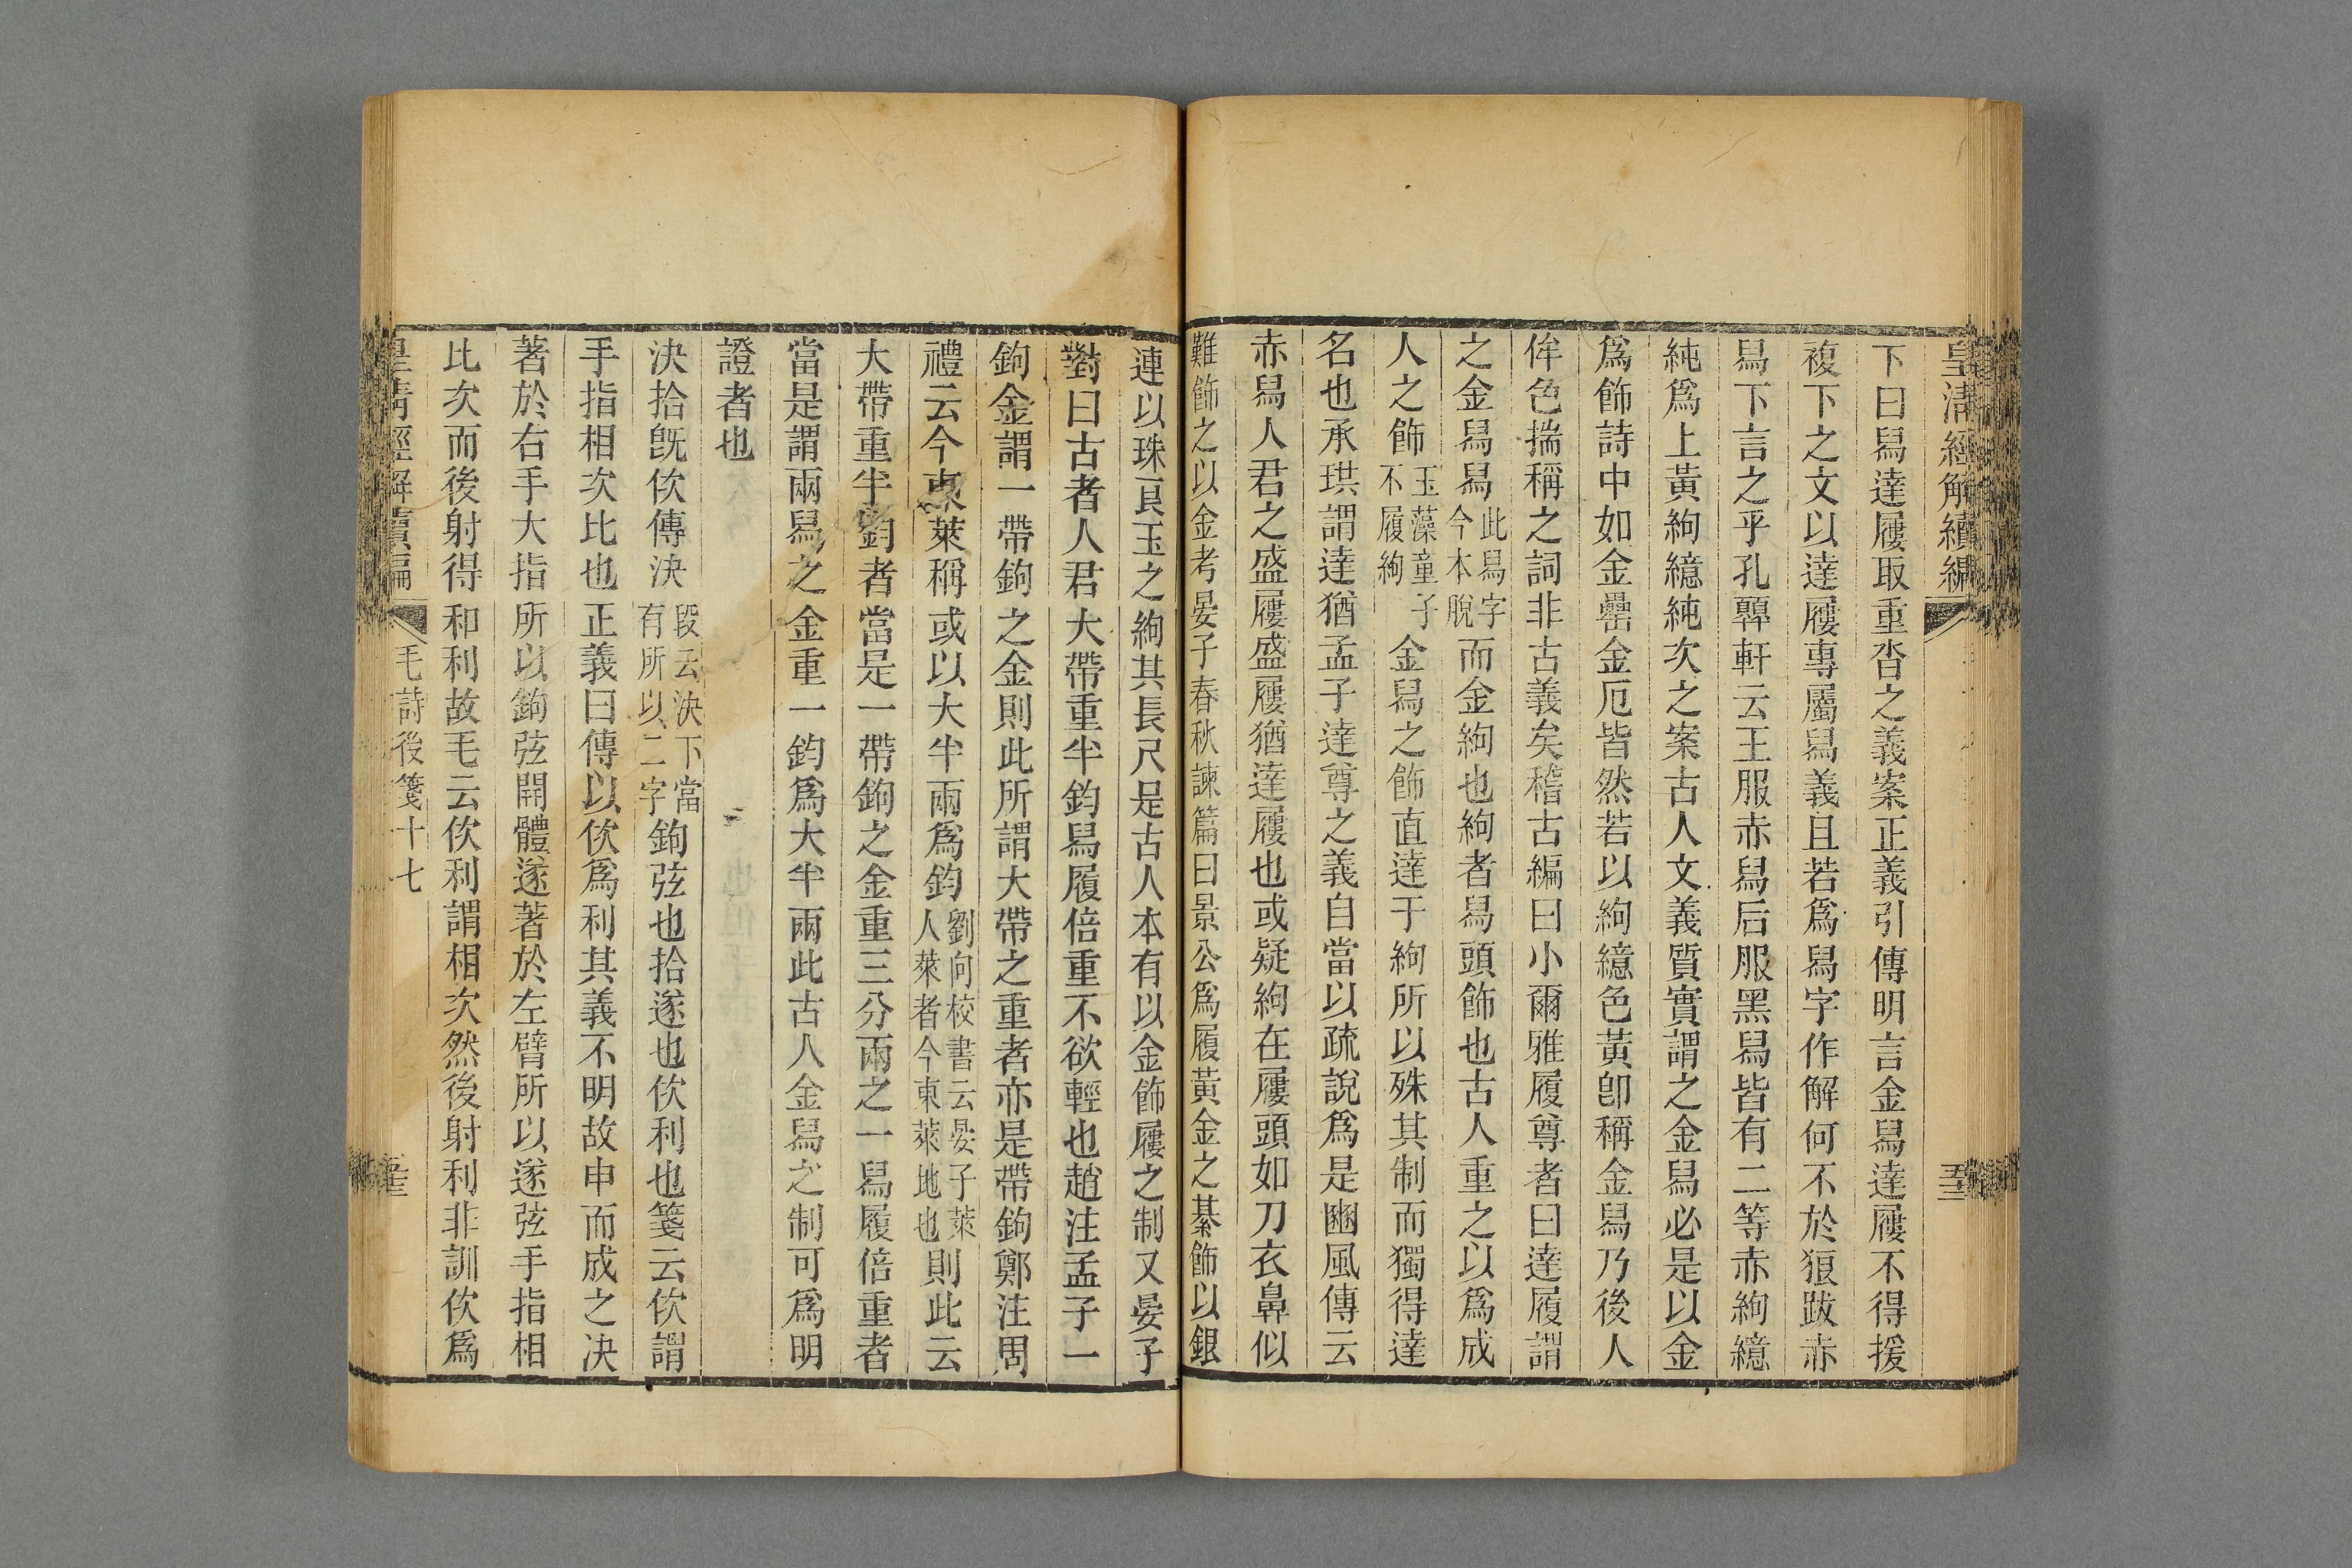 皇清經解續編
下曰舄達屨取重沓之義案正義引傳明言金舄達屨不得援
複下之文以達屨專屬舄義且若爲舄字作解何不於狼跋赤
舄下言之乎孔顨軒云王服赤舄后服黑舄皆有二等赤絇繶
純爲上黃絇繶純次之案古人文義質實謂之金舄必是以金
爲飾詩中如金罍金厄皆然若以絇繶色黃卽稱金舄乃後人
侔色揣稱之詞非古義矣稽古編曰小爾雅履尊者曰達履謂
之金舄舄此舄字今本脫而金絇也絇者舄頭飾也古人重之以爲成
人之飾玉藻童子不履絇金舄之飾直達于絇所以殊其制而獨得達
名也承珙謂達猶孟子達尊之義自當以疏說爲是豳風傳云
赤舄人君之盛屨盛屨猶達屨也或疑絇在屨頭如刀衣鼻似
難飾之以金考晏子春秋諫篇曰景公爲履黃金之綦飾以銀
連以珠良玉之絇其長尺是古人本有以金飾屨之制又晏子
對曰古者人君大帶重半鈞舄履倍重不欲輕也趙注孟子一
鉤金謂一帶鉤之金則此所謂大帶之重者亦是帶鉤鄭注周
禮云今東萊稱或以大半兩爲鈞劉向校書云晏子萊人萊者今東萊地也則此云
大帶重半鈞者當是一帶鉤之金重三分兩之一舄履倍重者
當是謂兩舄之金重一鈞爲大半兩此古人金舄之制可爲明
證者也
決拾旣佽傳決段云決下當有所以二字鉤弦也拾遂也佽利也箋云佽謂
手指相次比也正義曰傳以佽爲利其義不明故申而成之決
著於右手大指所以鉤弦開體遂著於左臂所以遂弦手指相
比次而後射得和利故毛云佽利謂相次然後射利非訓佽爲
皇清經解續編 毛詩後箋十七